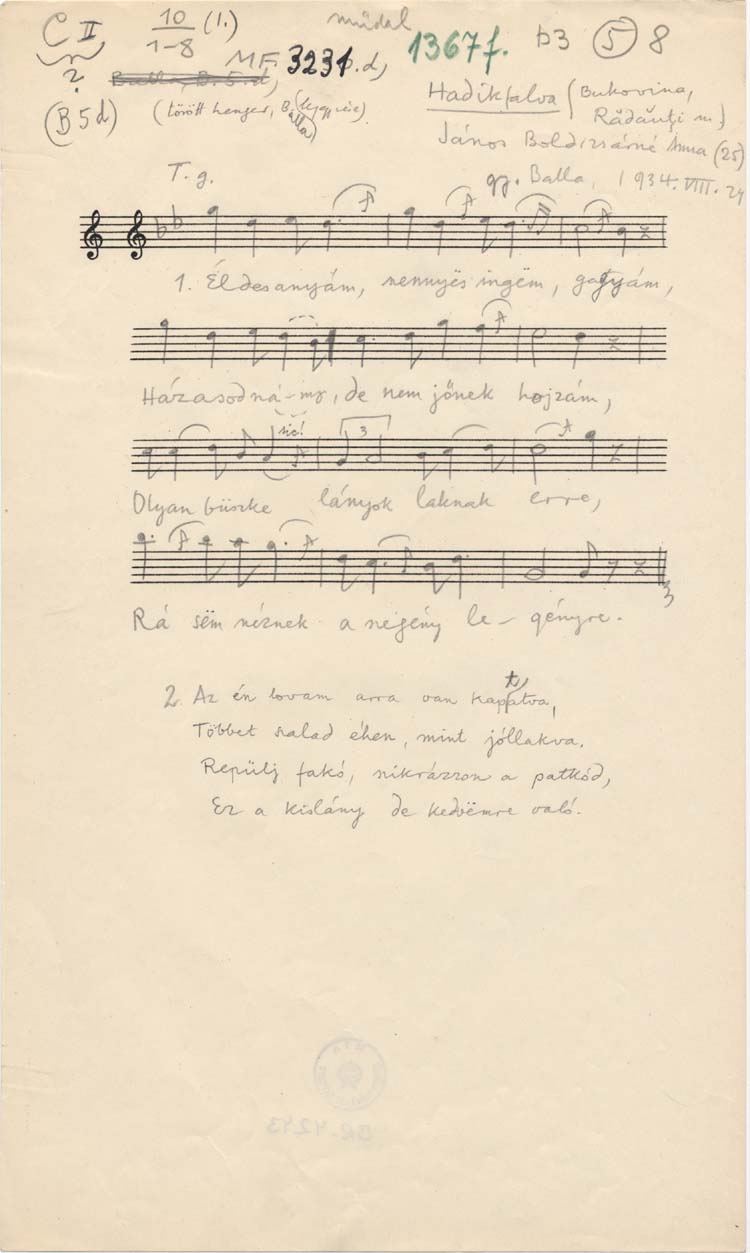 C II
?
10 (1.)
1-8
műdal
13677.
b3 (5) 8
Balla, B. 5. d,
MF. 3231. d,
(B 5d)
(törött henger, Balla
Hadikfalva (Bukovina,
Rădăuți m.)
János Boldizsárné Anna (25)
T. g.
gy. Balla, 1934. VIII. 24
1. Éldesanyám, mennyës ingëm, gatyám,
Házasodnám, de nem jőnek hojzám,
sic!
3
Olyan büszke lányok laknak erre,
Rá sëm néznek a négény le- gényre.
3
2. Az én lovam arra van kapatva,
Többet szalad éhen, mint jóllakva.
Repülj fakó, szikrázzon a patkód,
Ez a kislány de kedvëmre való.
BR-4243